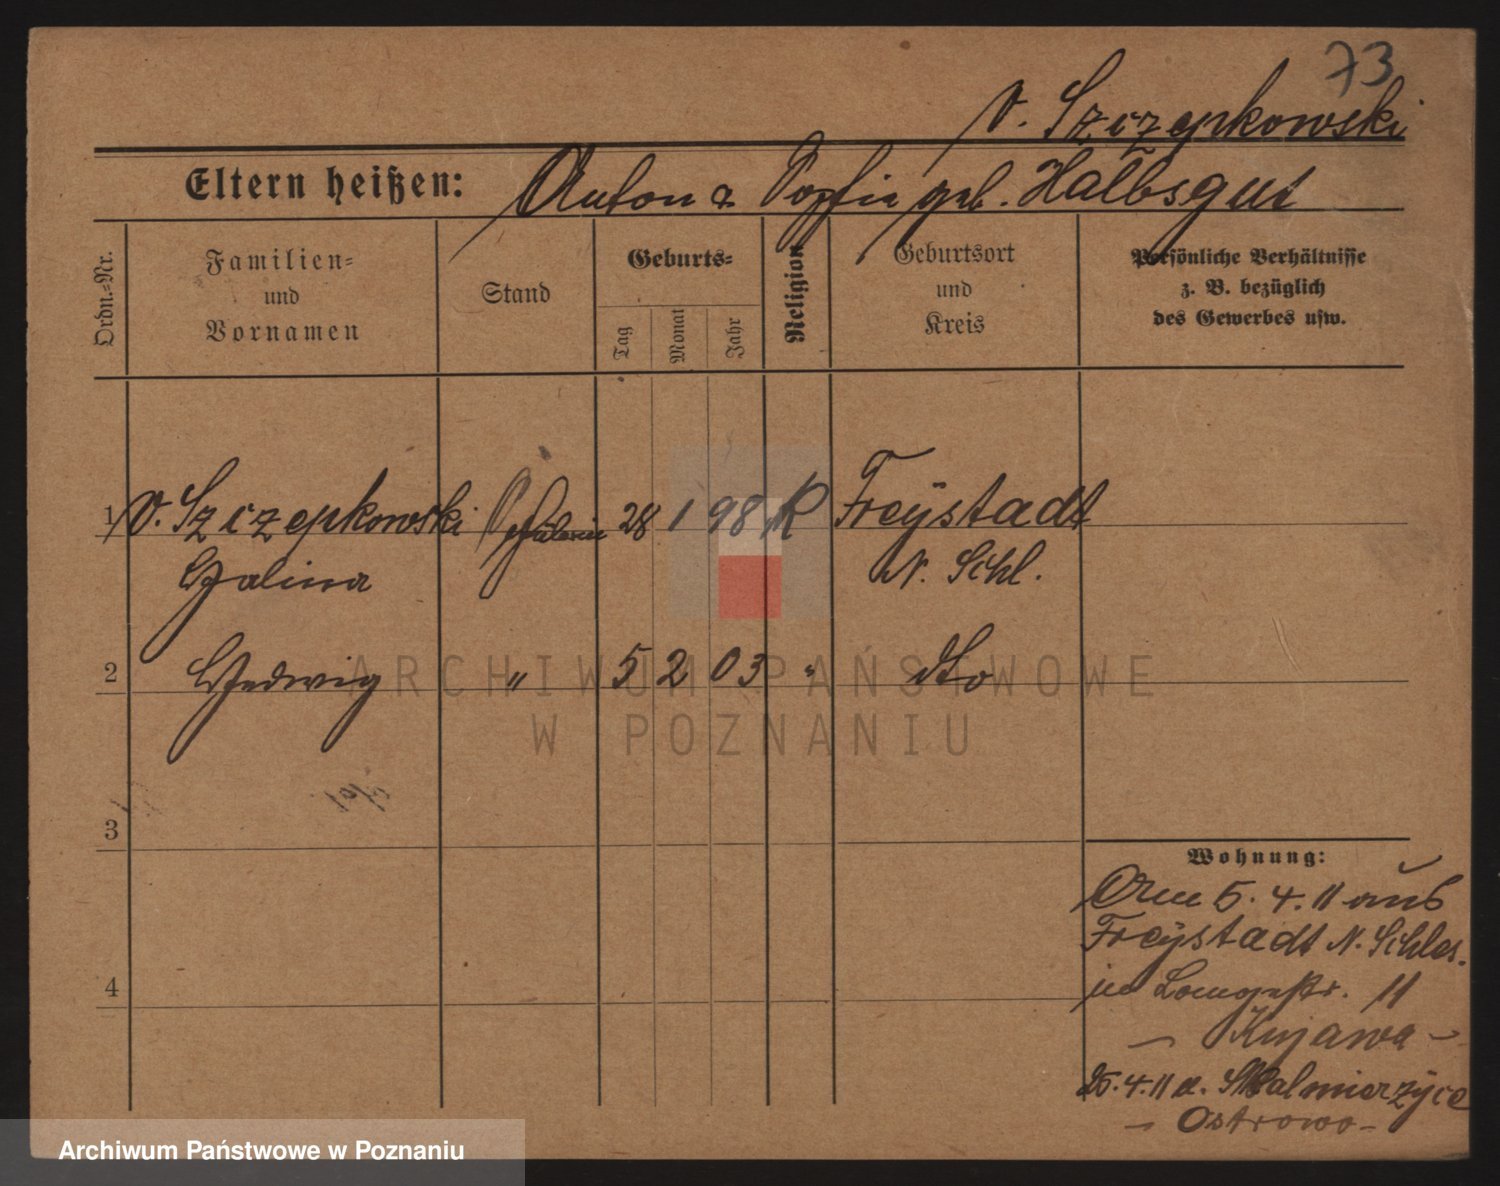 73
v. Szczepkowski
Eltern heißen: Anton & Sophie geb. Halbsgut
Ordn.-Nr.
Familien-
und
Vornamen
Stand
Geburts-
Tag
Monat
Jahr
Religion
Geburtsort
und
Kreis
Persönliche Verhältnisse
z. B. bezüglich
des Gewerbes usw.
1 v. Szczepkowski Schülerin 28 1 98 K Freÿstadt
Halina N. Schl.
2 Hedwig " 5 2 03 " dto
3
4
Wohnung:
Am 5. 4. 11 aus
Freÿstadt N. Schles.
in Langestr. 11
— Kujawa —
25. 4. 11 n. Skalmierzÿce
— Ostrowo —
ARCHIWUM PAŃSTWOWE
W POZNANIU
Archiwum Państwowe w Poznaniu